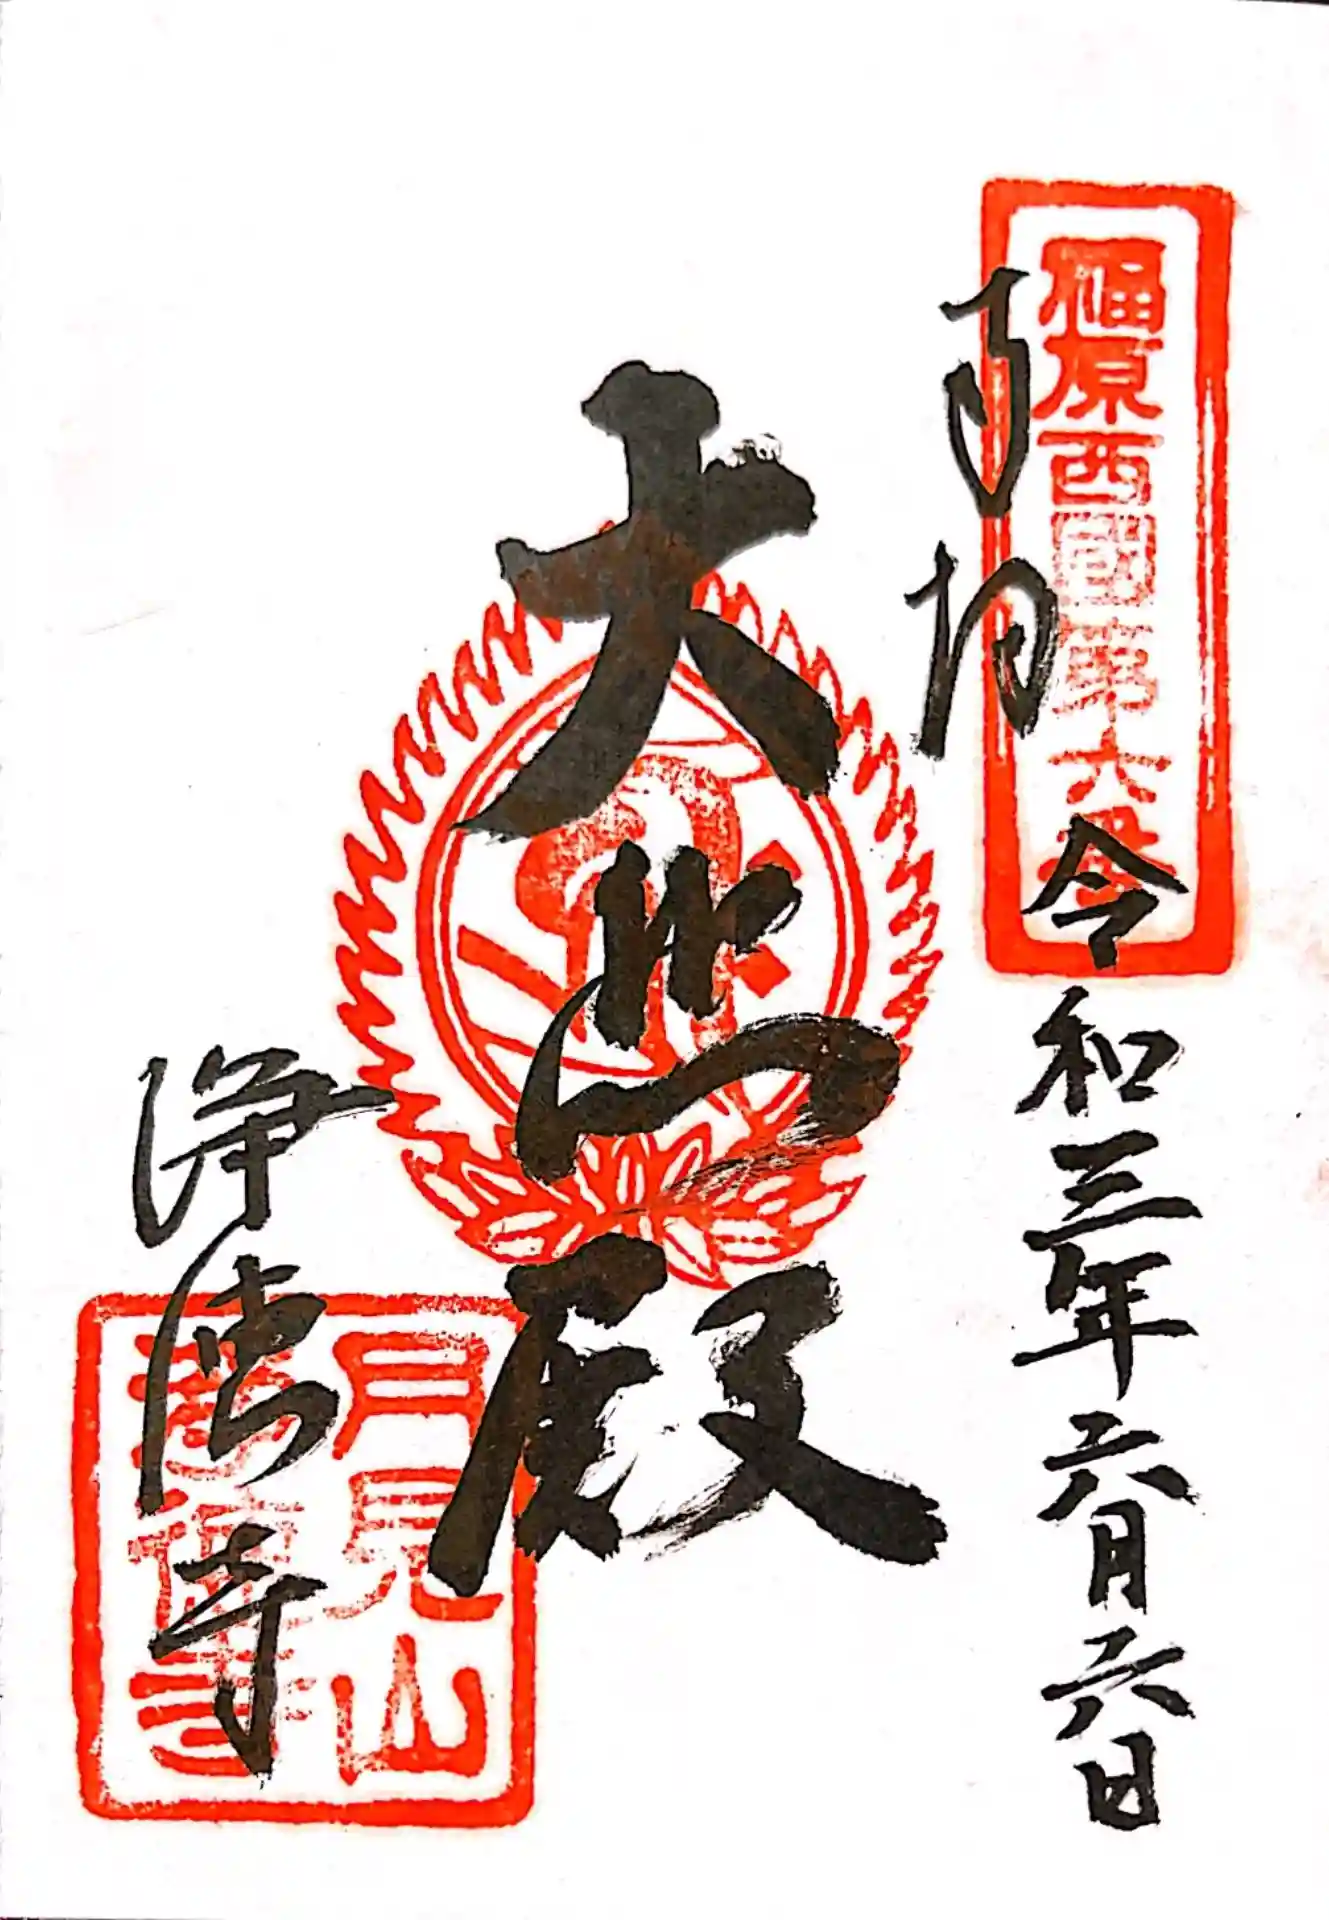 福原西國第六番
奉拝
令和三年六月六日
大悲殿
浄徳寺
月見山
浄徳寺